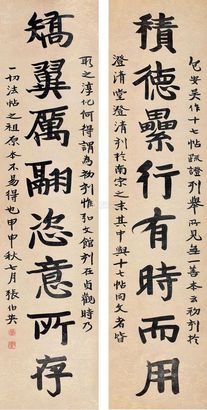 包安吳作十七帖疏證列舉所見無一善本云初刊於
積德纍行有時而用
澄清堂澄清刊於南宋之末其中與十七帖同文者皆
取之淳化何得謂為初刊惟弘文館刊在貞觀時乃
矯翼厲翮恣意所存
一切法帖之祖原本不易得也甲申秋七月張伯英